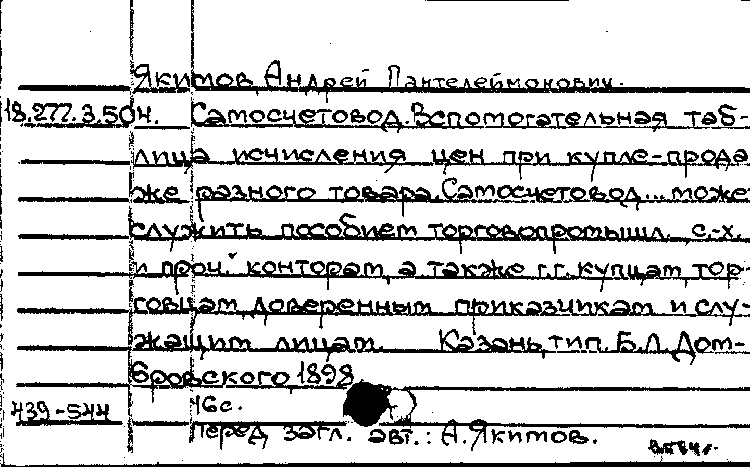 Якимов, Андрей Пантелеймонович.
18.277.3.504. Самосчетовод. Вспомогательная таб-
лица исчисления цен при купле-прода
же разного товара. Самосчетовод... може
служить пособием торговопромышл. с.-х.
и проч. конторам, а также г.г. купцам, тор-
говцам, доверенным приказчикам и слу-
жащим лицам. Казань, тип. Б.Л. Дом-
бровского, 1898
16с.
439-544
Перед загл. авт.: А. Якимов.